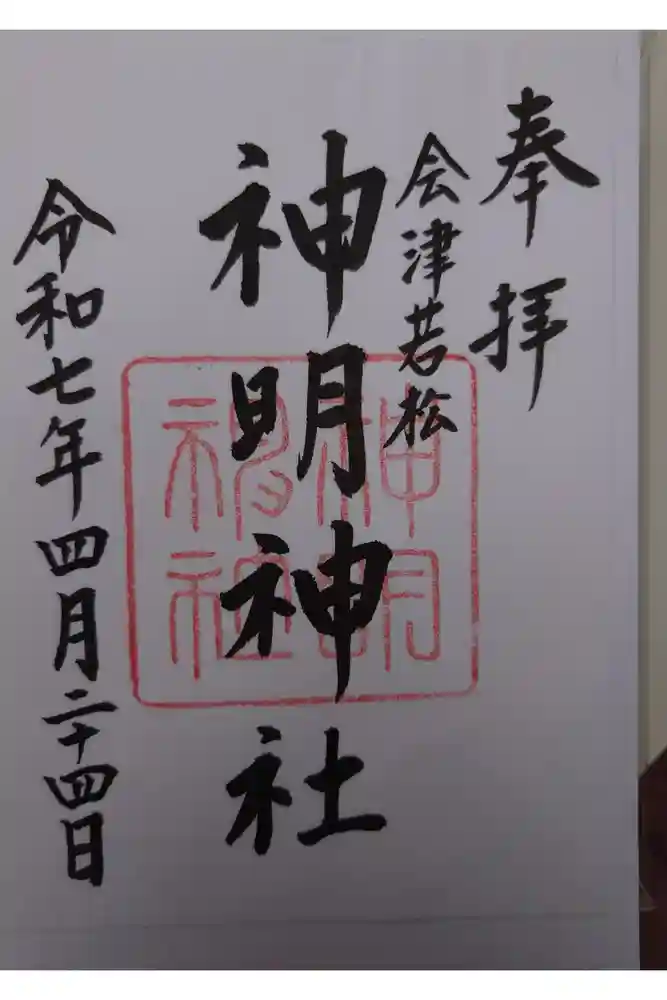 奉拝
会津若松
神明神社
令和七年四月二十四日
神明
神社